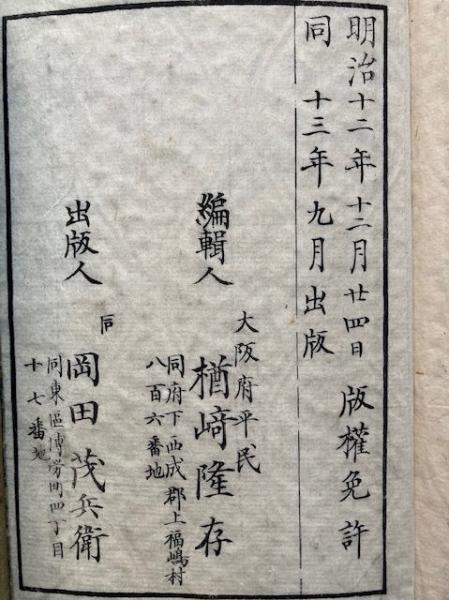 明治十二年十二月廿四日 版權免許
同 十三年九月出版
大阪府平民
編輯人 楢﨑隆存
同府下西成郡上福嶋村
八百六番地
同
出版人 岡田茂兵衛
同東區博労町四丁目
十七番地